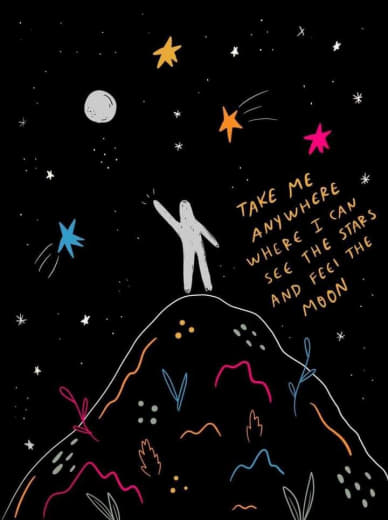 TAKE ME
ANYWHERE
WHERE I CAN
SEE THE STARS
AND FEEL THE
MOON